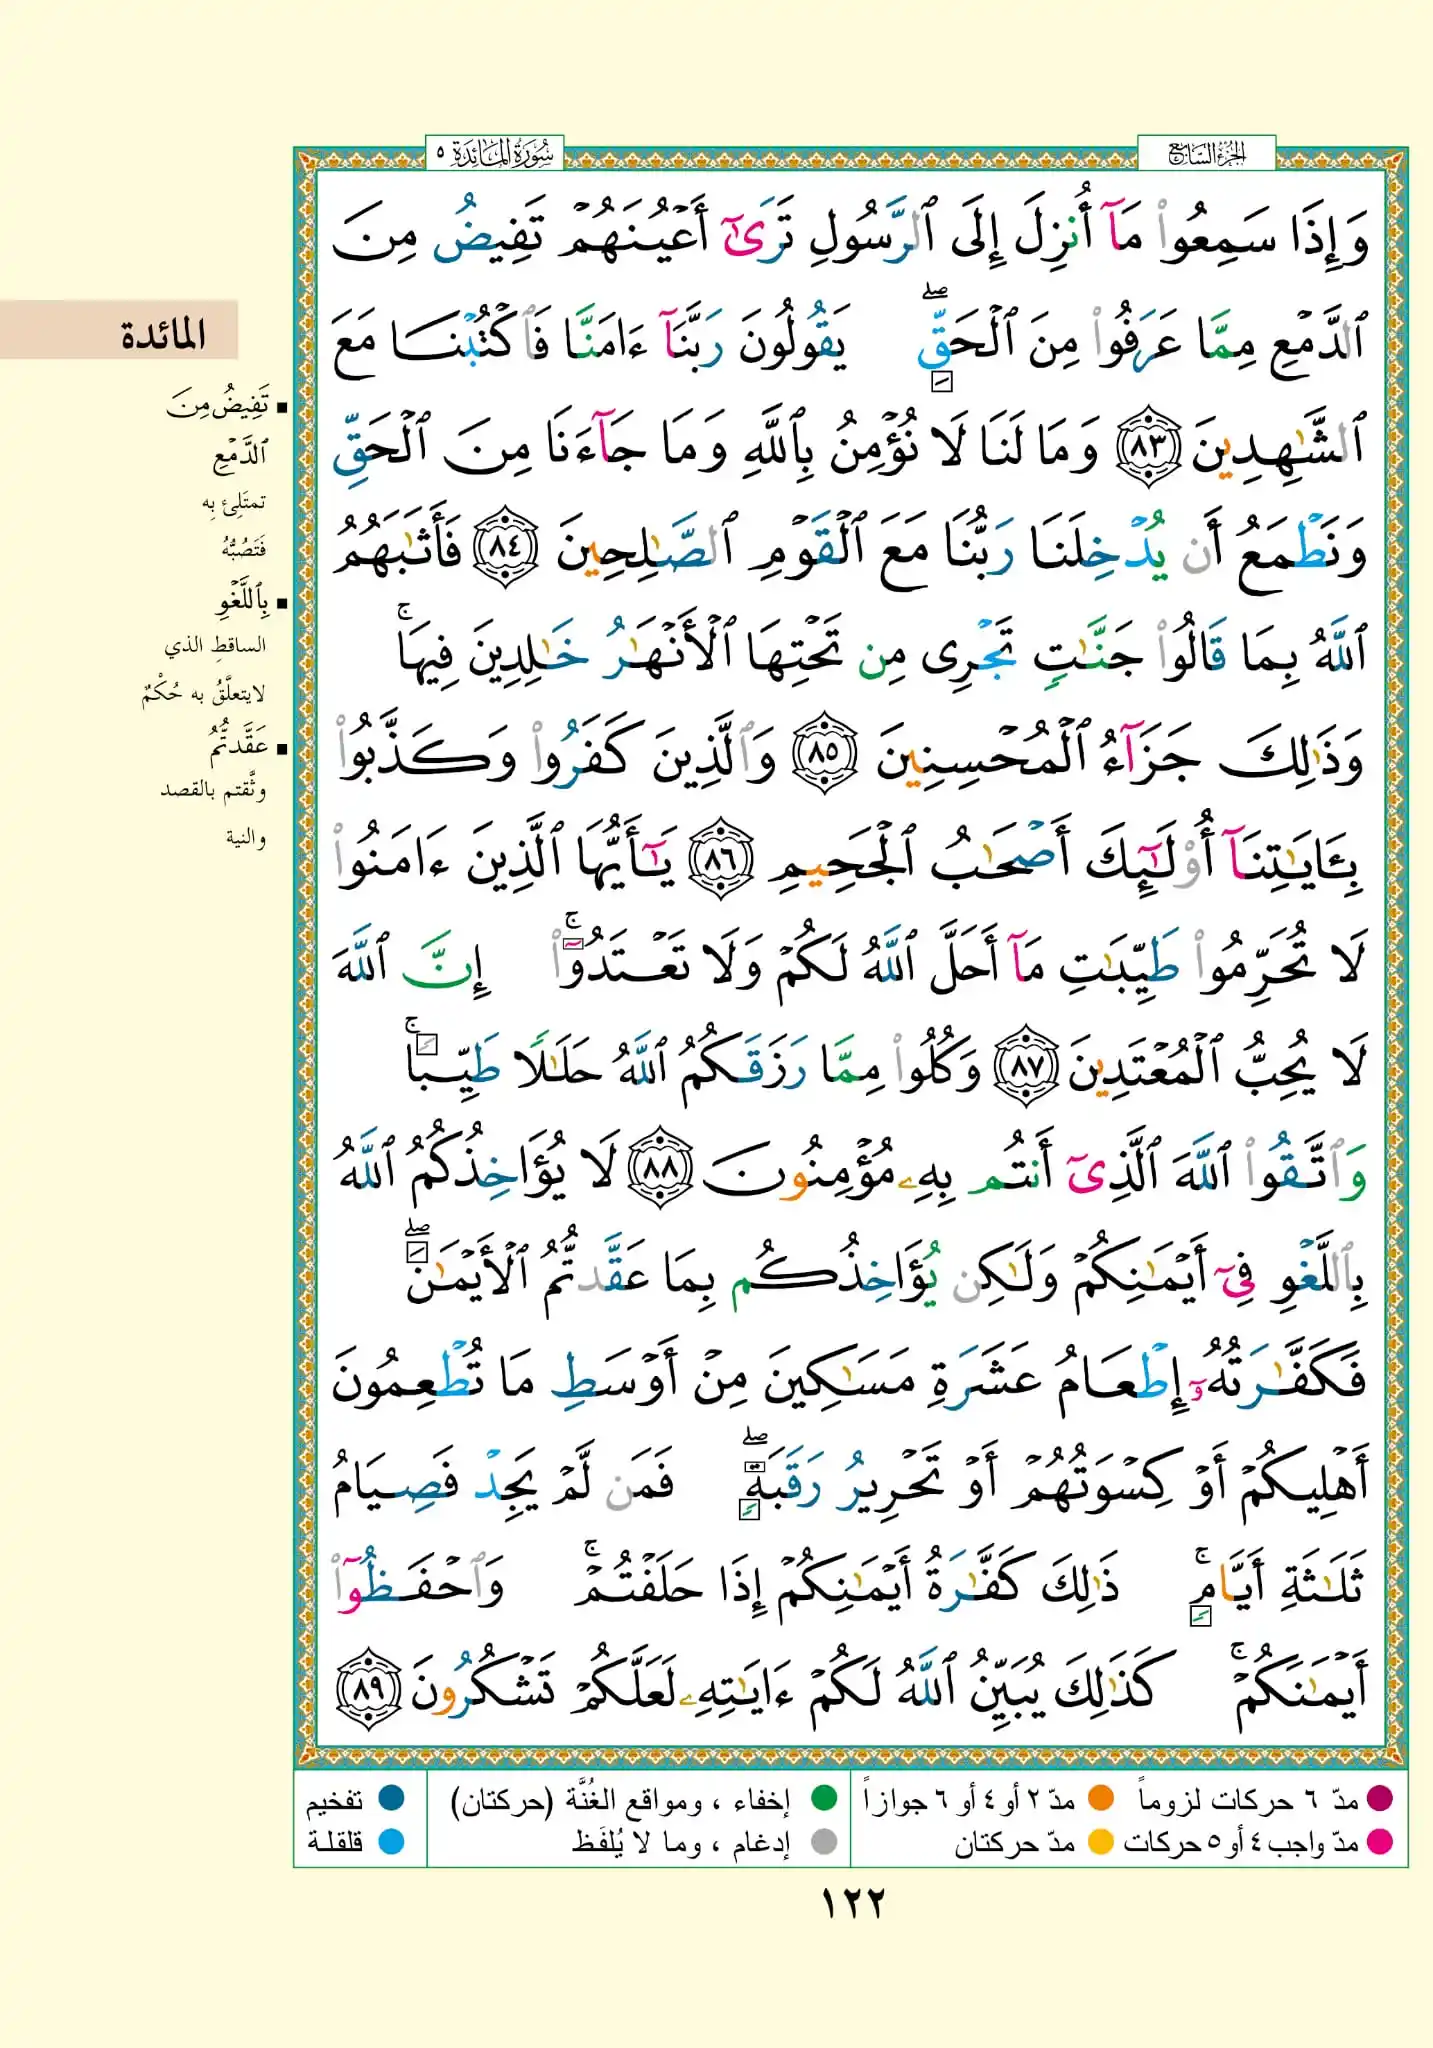 الجزء السابع
سورة المائدة ٥
وَإِذَا سَمِعُوا۟ مَآ أُنزِلَ إِلَى ٱلرَّسُولِ تَرَىٰٓ أَعْيُنَهُمْ تَفِيضُ مِنَ
ٱلدَّمْعِ مِمَّا عَرَفُوا۟ مِنَ ٱلْحَقِّ ۖ يَقُولُونَ رَبَّنَآ ءَامَنَّا فَٱكْتُبْنَا مَعَ
ٱلشَّٰهِدِينَ ٨٣ وَمَا لَنَا لَا نُؤْمِنُ بِٱللَّهِ وَمَا جَآءَنَا مِنَ ٱلْحَقِّ
وَنَطْمَعُ أَن يُدْخِلَنَا رَبُّنَا مَعَ ٱلْقَوْمِ ٱلصَّٰلِحِينَ ٨٤ فَأَثَٰبَهُمُ
ٱللَّهُ بِمَا قَالُوا۟ جَنَّٰتٍ تَجْرِى مِن تَحْتِهَا ٱلْأَنْهَٰرُ خَٰلِدِينَ فِيهَا ۚ
وَذَٰلِكَ جَزَآءُ ٱلْمُحْسِنِينَ ٨٥ وَٱلَّذِينَ كَفَرُوا۟ وَكَذَّبُوا۟
بِـَٔايَٰتِنَآ أُو۟لَٰٓئِكَ أَصْحَٰبُ ٱلْجَحِيمِ ٨٦ يَٰٓأَيُّهَا ٱلَّذِينَ ءَامَنُوا۟
لَا تُحَرِّمُوا۟ طَيِّبَٰتِ مَآ أَحَلَّ ٱللَّهُ لَكُمْ وَلَا تَعْتَدُوٓا۟ ۚ إِنَّ ٱللَّهَ
لَا يُحِبُّ ٱلْمُعْتَدِينَ ٨٧ وَكُلُوا۟ مِمَّا رَزَقَكُمُ ٱللَّهُ حَلَٰلًا طَيِّبًا ۚ
وَٱتَّقُوا۟ ٱللَّهَ ٱلَّذِىٓ أَنتُم بِهِۦ مُؤْمِنُونَ ٨٨ لَا يُؤَاخِذُكُمُ ٱللَّهُ
بِٱللَّغْوِ فِىٓ أَيْمَٰنِكُمْ وَلَٰكِن يُؤَاخِذُكُم بِمَا عَقَّدتُّمُ ٱلْأَيْمَٰنَ ۖ
فَكَفَّٰرَتُهُۥٓ إِطْعَامُ عَشَرَةِ مَسَٰكِينَ مِنْ أَوْسَطِ مَا تُطْعِمُونَ
أَهْلِيكُمْ أَوْ كِسْوَتُهُمْ أَوْ تَحْرِيرُ رَقَبَةٍ ۖ فَمَن لَّمْ يَجِدْ فَصِيَامُ
ثَلَٰثَةِ أَيَّامٍ ۚ ذَٰلِكَ كَفَّٰرَةُ أَيْمَٰنِكُمْ إِذَا حَلَفْتُمْ ۚ وَٱحْفَظُوٓا۟
أَيْمَٰنَكُمْ ۚ كَذَٰلِكَ يُبَيِّنُ ٱللَّهُ لَكُمْ ءَايَٰتِهِۦ لَعَلَّكُمْ تَشْكُرُونَ ٨٩
المائدة
تَفِيضُ مِنَ
ٱلدَّمْعِ
تمتَلِئ بِه
فَتَصُبُّهُ
بِٱللَّغْوِ
الساقطِ الذي
لا يتعلَّقُ به حُكْمٌ
عَقَّدتُّمُ
وثَّقتم بالقصد
والنية
مدّ ٦ حركات لزوماً
مدّ ٢ أو ٤ أو ٦ جوازاً
إخفاء ، ومواقع الغُنَّة (حركتان)
تفخيم
مدّ واجب ٤ أو ٥ حركات
مدّ حركتان
إدغام ، وما لا يُلفَظ
قلقلة
١٢٢